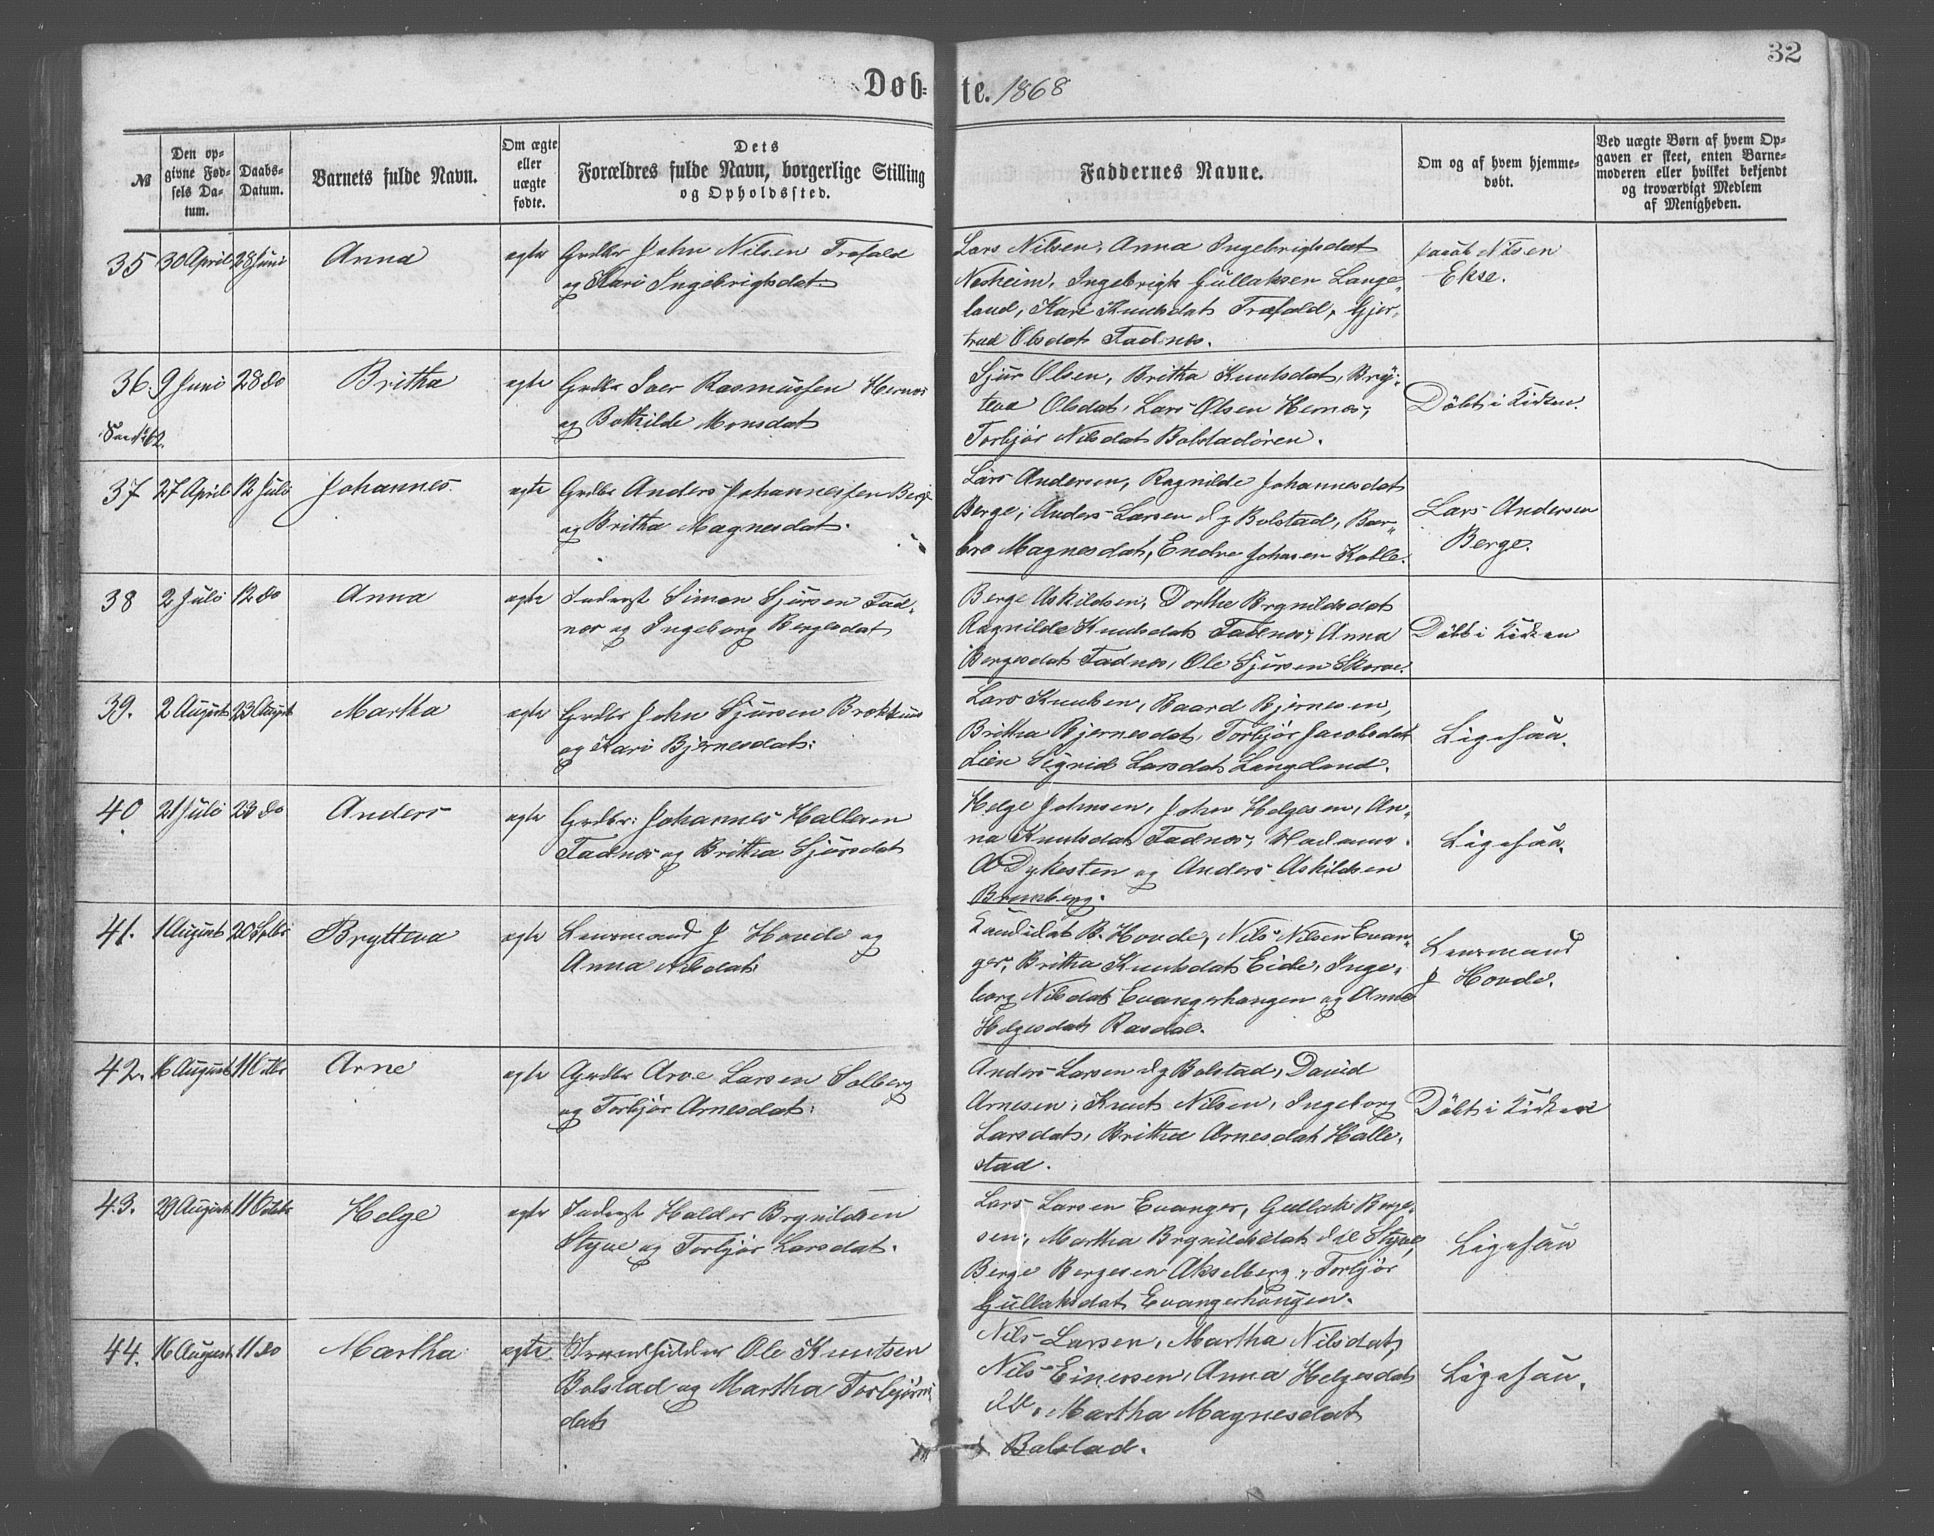 32
Døb-te. 1868
№
Den op-
givne Fød-
sels Da-
tum.
Daabs-
Datum.
Barnets fulde Navn.
Om ægte
eller
uægte
fødte.
Dets
Forældres fulde Navn, borgerlige Stilling
og Opholdssted.
Faddernes Navne.
Om og af hvem hjemme-
døbt.
Ved uægte Børn af hvem Op-
gaven er skeet, enten Barne-
moderen eller hvilket bekjendt
og troværdigt Medlem
af Menigheden.
35 30 April 28 Juni Anna ægte Grdbr John Nilsen Træfald
og Kari Ingebrigtsdat
Lars Nilsen, Anna Ingebrigtsdat
Næsheim, Ingebrigt Gullaksen Lange-
land, Kari Knutsdat Træfald, Gjer-
trud Olsdat Fadnes.
Jacob Nilsen
Ekse.
36. 9 Juni 28 do Britha ægte Grdbr Iver Rasmussen Hernes
og Bothilde Monsdat
Sjur Olsen, Britha Knutsdat, Bryt-
teva Olsdat, Lars Olsen Hernes,
Torbjør Nilsdat Bolstadøren.
Døbt i Kirken.
37 27 April 12 Juli Johannes ægte Grdbr Anders Johannessen Berge
og Britha Magnesdat.
Lars Andersen, Ragnilde Johannesdat
Berge, Anders Larsen Bolstad, Bar-
bro Magnesdat, Endre Johnsen Kolle.
Lars Andersen
Berge.
38 2 Juli 12 do Anna ægte Inderst Simon Sjursen Fad-
nes og Ingeborg Bergesdat
Berge Askildsen, Dorthe Brynildsdat
Ragnilde Knutsdat Fadnes, Anna
Bergesdat Fadnes, Ole Sjursen Skorve.
Døbt i Kirken
39. 2 August 23 August Martha ægte Grdbr John Sjursen Brækhus
og Kari Bjørnesdat.
Lars Knutsen, Baard Bjørnesen,
Britha Bjørnesdat, Torbjør Jacobsdat
Lien Sigrid Larsdat Langeland.
Ligesaa.
40. 21 Juli 23 do Anders ægte Grdbr: Johannes Hallsen
Fadnes og Britha Sjursdat
Helge Johnsen, John Helgesen, An-
na Knutsdat Fadnes, Madame
Dykesten og Anders Askildsen
Brunborg.
Ligesaa.
41. 1 August 20 Septbr Brytteva ægte Lensmand J Hovde og
Anna Nilsdat
Kandidat B. Hovde, Nils Nilsen Evan-
ger, Britha Knutsdat Eide, Inge-
borg Nilsdat Evangerhaugen og Anna
Helgesdat Rasdal.
Lensmand
J Hovde.
42. 16 August 11 Octbr Arne ægte Grdbr Arne Larsen Solberg
og Torbjør Arnesdat.
Anders Larsen Bolstad, David
Arnesen, Knut Nilsen, Ingeborg
Larsdat, Britha Arnesdat Halle-
stad.
Døbt i Kirken
43. 29 August 11 Octbr Helge ægte Inderst Haldor Brynildsen
Styve og Torbjør Larsdat.
Lars Larsen Evanger, Gullak Berge-
sen, Martha Brynildsdat Styve,
Berge Bergesen Akselberg, Torbjør
Gullaksdat Evangerhaugen.
Ligesaa
44. 16 August 11 do Martha ægte Ole Knutsen
Bolstad og Martha Torbjørns-
dat
Nils Larsen, Martha Nilsdat,
Nils Einersen, Anna Helgesdat
Martha Magnesdat
Bolstad.
Ligesaa.